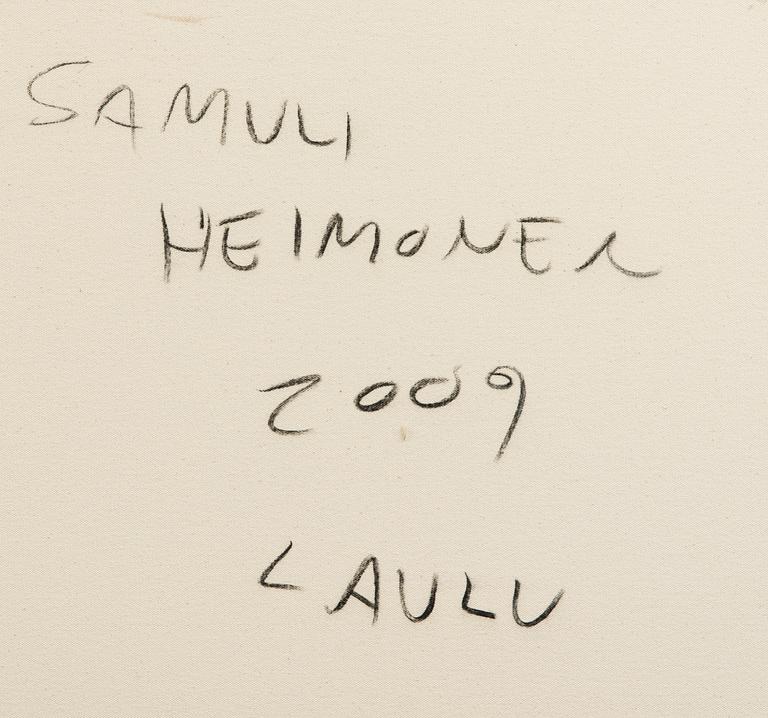 SAMULI
HEIMONEN
2009
LAULU